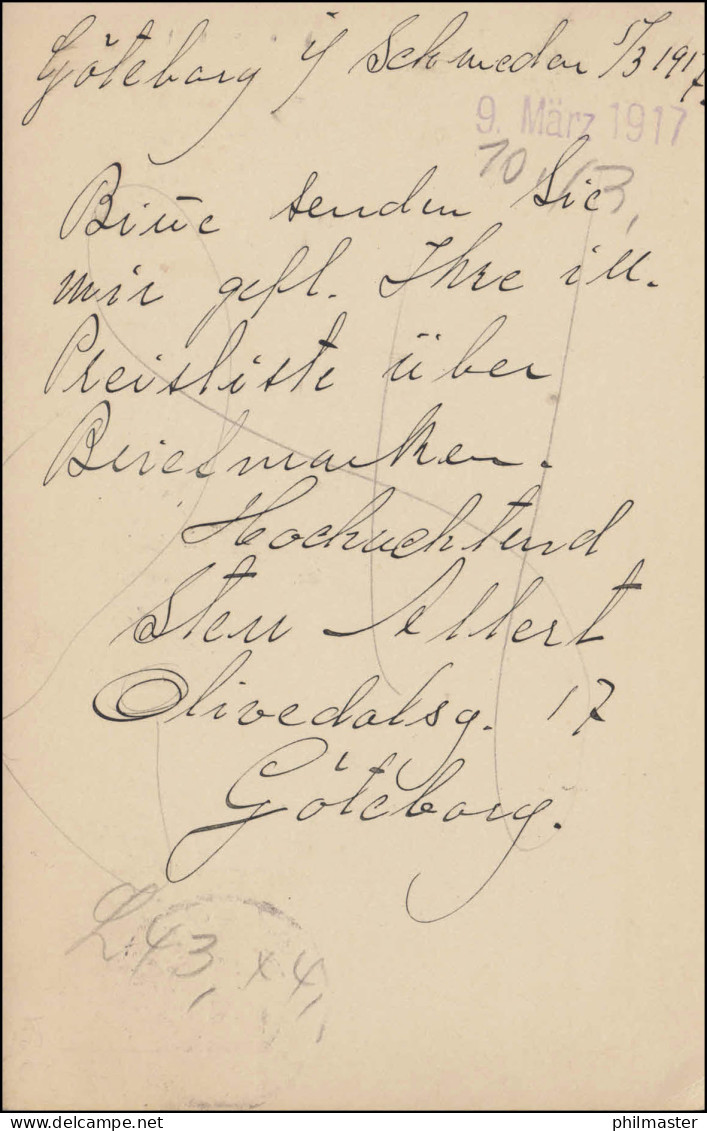 Göteborg i/ Schweden 5/3 1917.
9. März 1917
10./3,
Bitte senden Sie
mir gefl. Ihre ill.
Preisliste über
Briefmarken.
Hochachtend
Sten Allert
Olivedalsg. 17
Göteborg.
L 43, x 4,
delcampe.net
philmaster